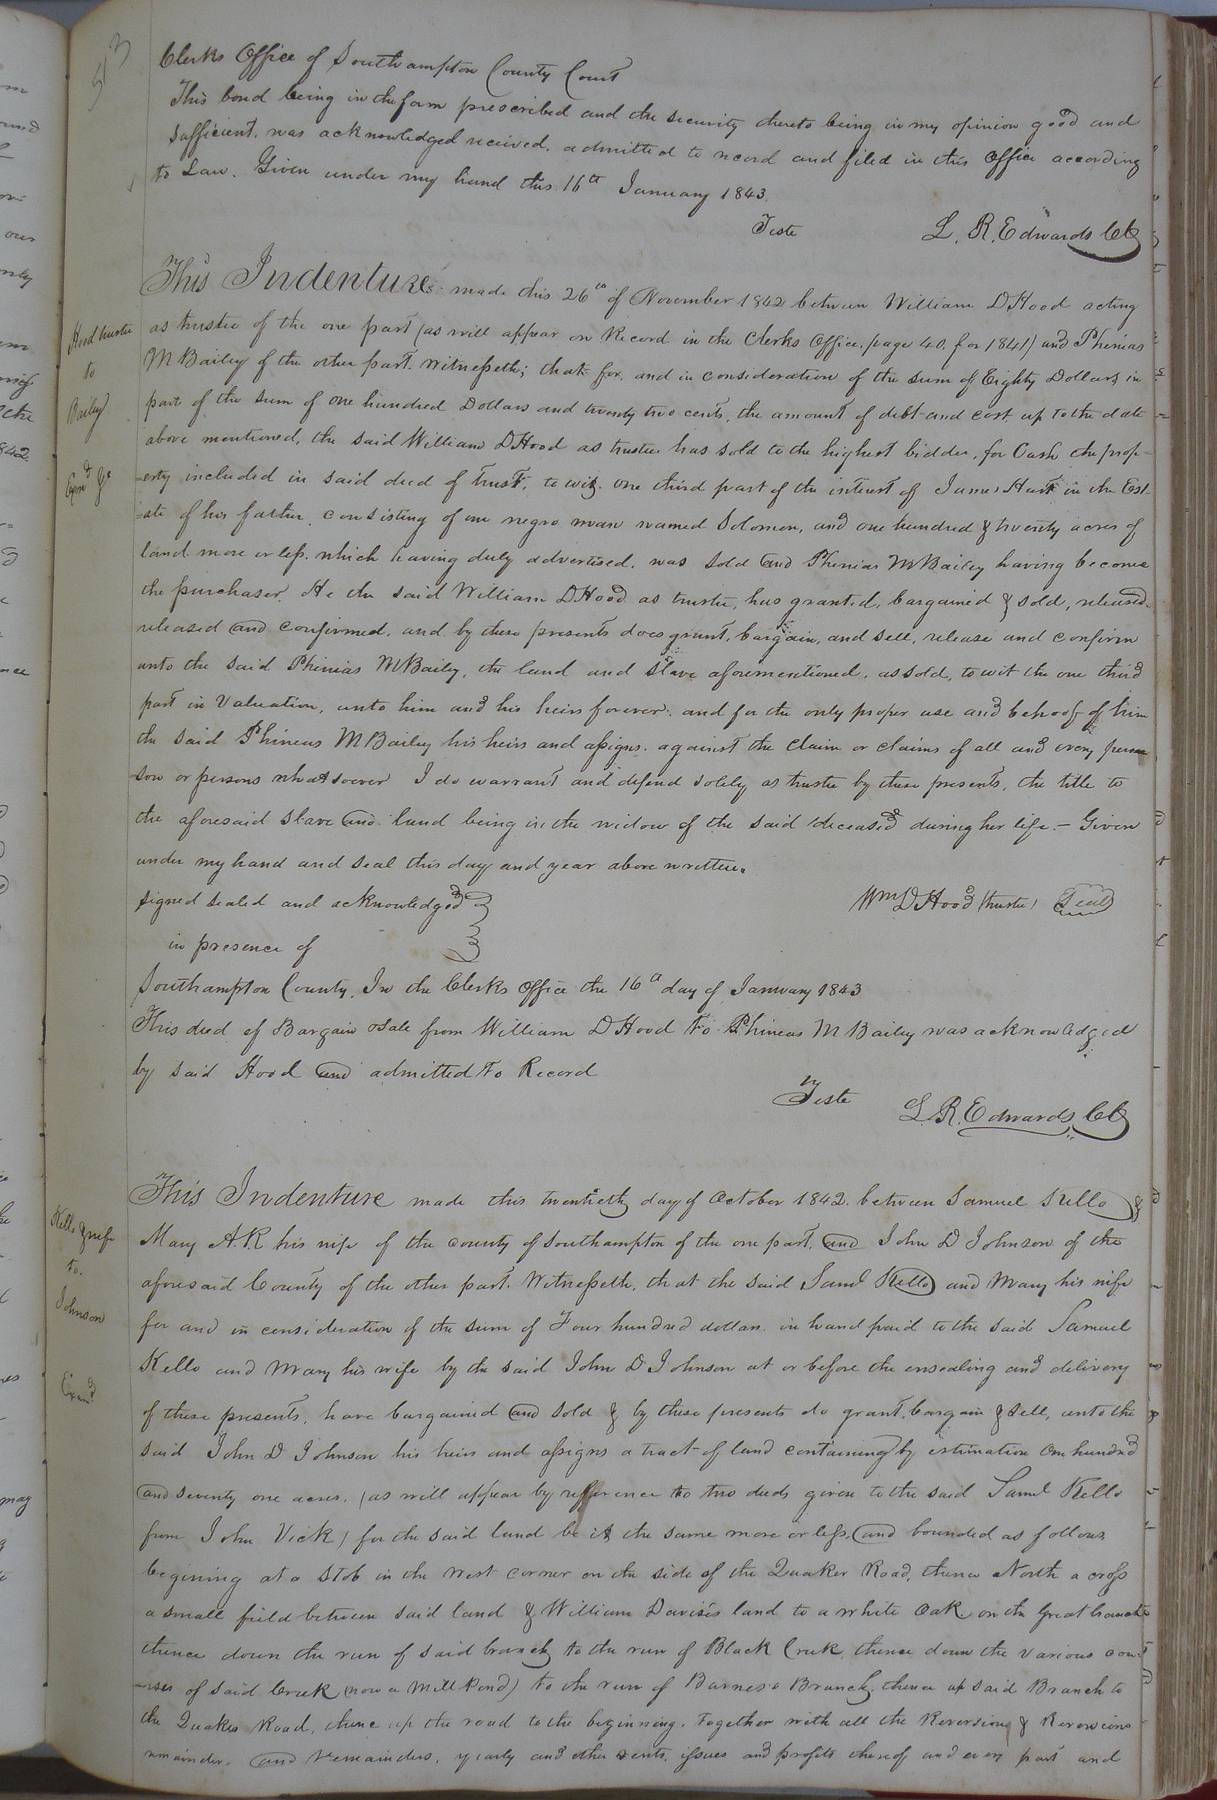 513
Clerks Office of Southampton County Court
This bond being in the form prescribed and the security thereto being in my opinion good and
sufficient. was acknowledged received. admitted to record and filed in this office according
to Law. Given under my hand this 16th January 1843.
Teste L. R. Edwards CC
This Indenture made this 26th of November 1842 between William D Hood acting
Hood trustee
to
Bailey
Exmd
as trustee of the one part (as will appear on Record in the Clerks Office, page 40, for 1841) and Phenias
M Bailey of the other part. Witnesseth; that for, and in consideration of the sum of Eighty Dollars in
part of the sum of one hundred Dollars and twenty two cents, the amount of debt and cost up to the date
above mentioned, the said William D Hood as trustee has sold to the highest bidder, for Cash the prop-
-erty included in said deed of trust, to wit. one third part of the interest of James Hart in the Est-
-ate of his father. consisting of one negro man named Solomon, and one hundred & twenty acres of
land more or less. which having duly advertised. was sold and Phenias M Bailey having become
the purchaser. He the said William D Hood as trustee, has granted, bargained & sold, released
released and confirmed. and by these presents does grant, bargain, and sell, release and confirm
unto the said Phinias M Baily, the land and slave aforementioned. as sold, to wit the one third
part in Valuation, unto him and his heirs forever. and for the only proper use and behoof of him
the said Phineas M Bailey his heirs and assigns. against the claim or claims of all and every per
-son or persons whatsoever I do warrant and defend solely as trustee by these presents, the title to
the aforesaid slave and land being in the widow of the said deceased during her life. – Given
under my hand and seal this day and year above written.
Signed sealed and acknowledged
in presence of
Wm D Hood (trustee) Seal
Southampton County, In the Clerks Office the 16th day of January 1843
This deed of Bargain & Sale from William D Hood to Phineas M Bailey was acknowledged
by said Hood and admitted to Record
Teste L R. Edwards, CC
This Indenture made this twentieth day of October 1842. between Samuel Kello &
Kello & wife
to.
Johnson
Exmd
Mary A. R his wife of the county of Southampton of the one part, and John D Johnson of the
aforesaid County of the other part. Witnesseth, that the said Saml Kello and Mary his wife
for and in consideration of the sum of Four hundred dollars. in hand paid to the said Samuel
Kello and Mary his wife by the said John D Johnson at or before the ensealing and delivery
of these presents, have bargained and sold & by these presents do grant, bargain & sell, unto the
said John D Johnson his heirs and assigns a tract of land containing by estimation One hundred
and seventy one acres. (as will appear by reference to two deeds given to the said Saml Kello
from John Vick) for the said land be it the same more or less, and bounded as follows
begining at a stob in the West corner on the side of the Quaker Road, thence North a cross
a small field between said land & William Davis's land to a white Oak on the Great branch
thence down the run of said branch to the run of Black Creek thence down the various cou-
-rses of said Creek (now a Mill Pond) to the run of Barnes's Branch, thence up said Branch to
the Quaker Road, thence up the road to the beginning. Together with all the Reversion & Reversions
remainder. and remainders, yearly and other rents, issues and profits thereof and every part and